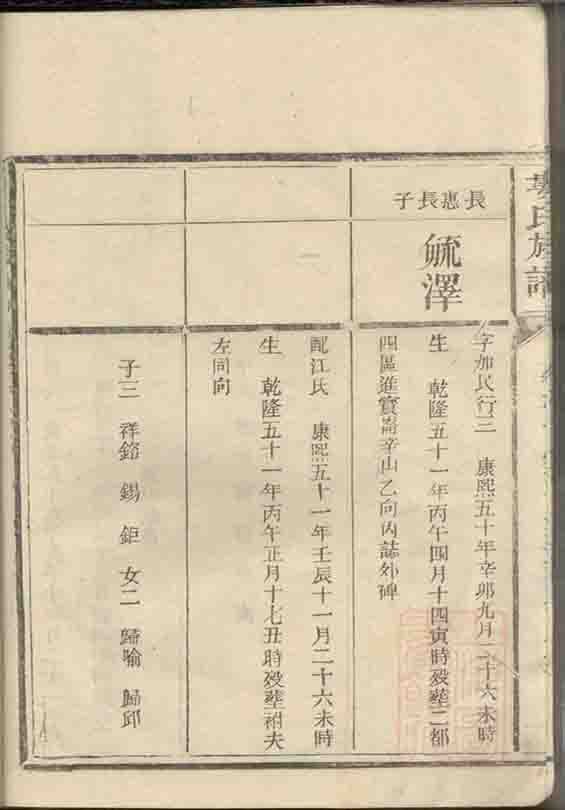 氏族譜
長惠長子
毓澤
字加民行三 康熙五十年辛卯九月二十六未時
生 乾隆五十一年丙午四月十四寅時歿塟二都
四區進寶崙辛山乙向內誌外碑
配江氏 康熙五十一年壬辰十一月二十六未時
生 乾隆五十一年丙午正月十七丑時歿塟祔夫
左同向
子三 祥 錫 鉅 女二 歸喻 歸邱